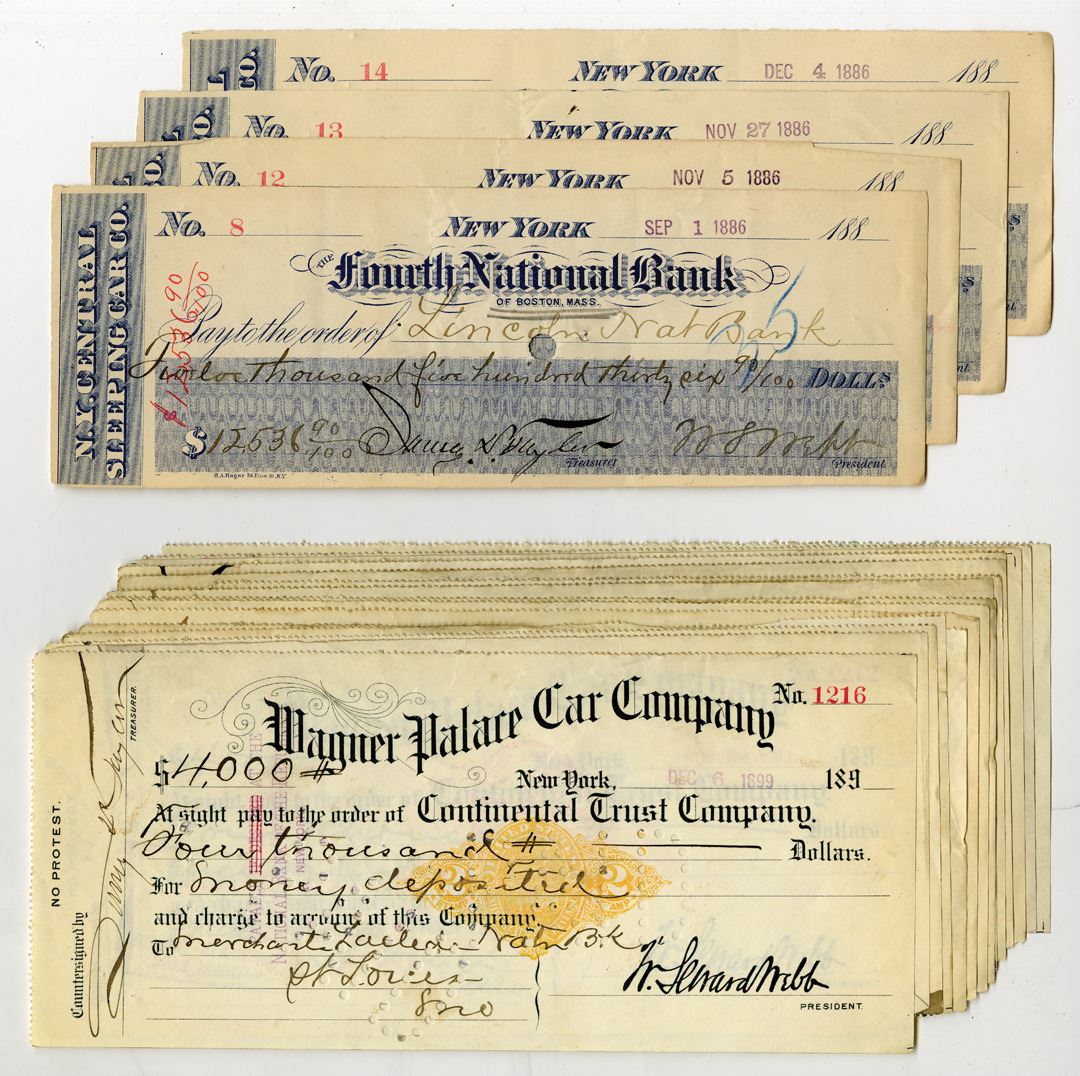 No. 14 New York DEC 4 1886 188
No. 13 New York NOV 27 1886 188
No. 12 New York NOV 5 1886 188
N.Y. Central
Sleeping Car Co.
No. 8 New York SEP 1 1886 188
The Fourth National Bank
of Boston, Mass.
Pay to the order of Lincoln Nat Bank
Twelve thousand five hundred thirty six 90/100 Dolls
$12536 90/100
$12536 90/100
Treasurer
W S Webb
President
No. 1216
Wagner Palace Car Company
$4,000 #
New York, DEC 6 1899 189
At sight pay to the order of Continental Trust Company.
Four thousand # Dollars.
For money deposited
and charge to account of this Company.
To Merchants Nat Bk
St Louis
Mo
W. Seward Webb
PRESIDENT.
NO PROTEST.
Countersigned by
TREASURER.